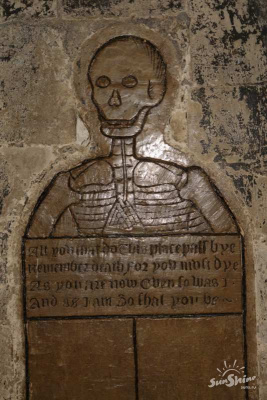 All you that do this place pass bye
Remember death for you must dye
As you are now even so was I
And as I am So shal you be
SunShine